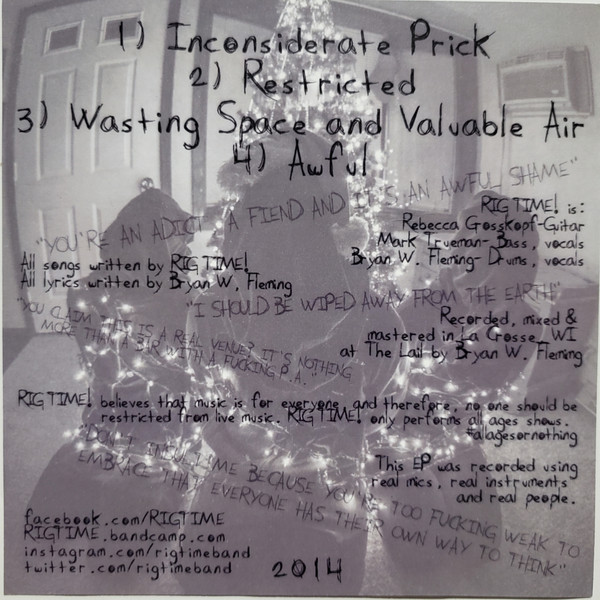 1) Inconsiderate Prick
2) Restricted
3) Wasting Space and Valuable Air
4) Awful
"YOU'RE AN ADICT A FIEND AND IT'S AN AWFUL SHAME"
RIG TIME! is:
Rebecca Grosskopf-Guitar
Mark Trueman- Bass, vocals
Bryan W. Fleming- Drums, vocals
All songs written by RIG TIME!
All lyrics written by Bryan W, Fleming
"I SHOULD BE WIPED AWAY FROM THE EARTH"
Recorded, mixed &
mastered in La Crosse, WI
at The Lail by Bryan W. Fleming
"YOU CLAIM THIS IS A REAL VENUE? IT'S NOTHING
MORE THAN A BAR WITH A FUCKING P.A."
RIG TIME! believes that music is for everyone, and therefore, no one should be
restricted from live music. RIG TIME! only performs all ages shows.
#allagesornothing
"DON'T INSULT ME BECAUSE YOU'RE TOO FUCKING WEAK TO
EMBRACE THAT EVERYONE HAS THEIR OWN WAY TO THINK"
This EP was recorded using
real mics, real instruments
and real people.
facebook.com/RIGTIME
RIGTIME.bandcamp.com
instagram.com/rigtimeband
twitter.com/rigtimeband
2014